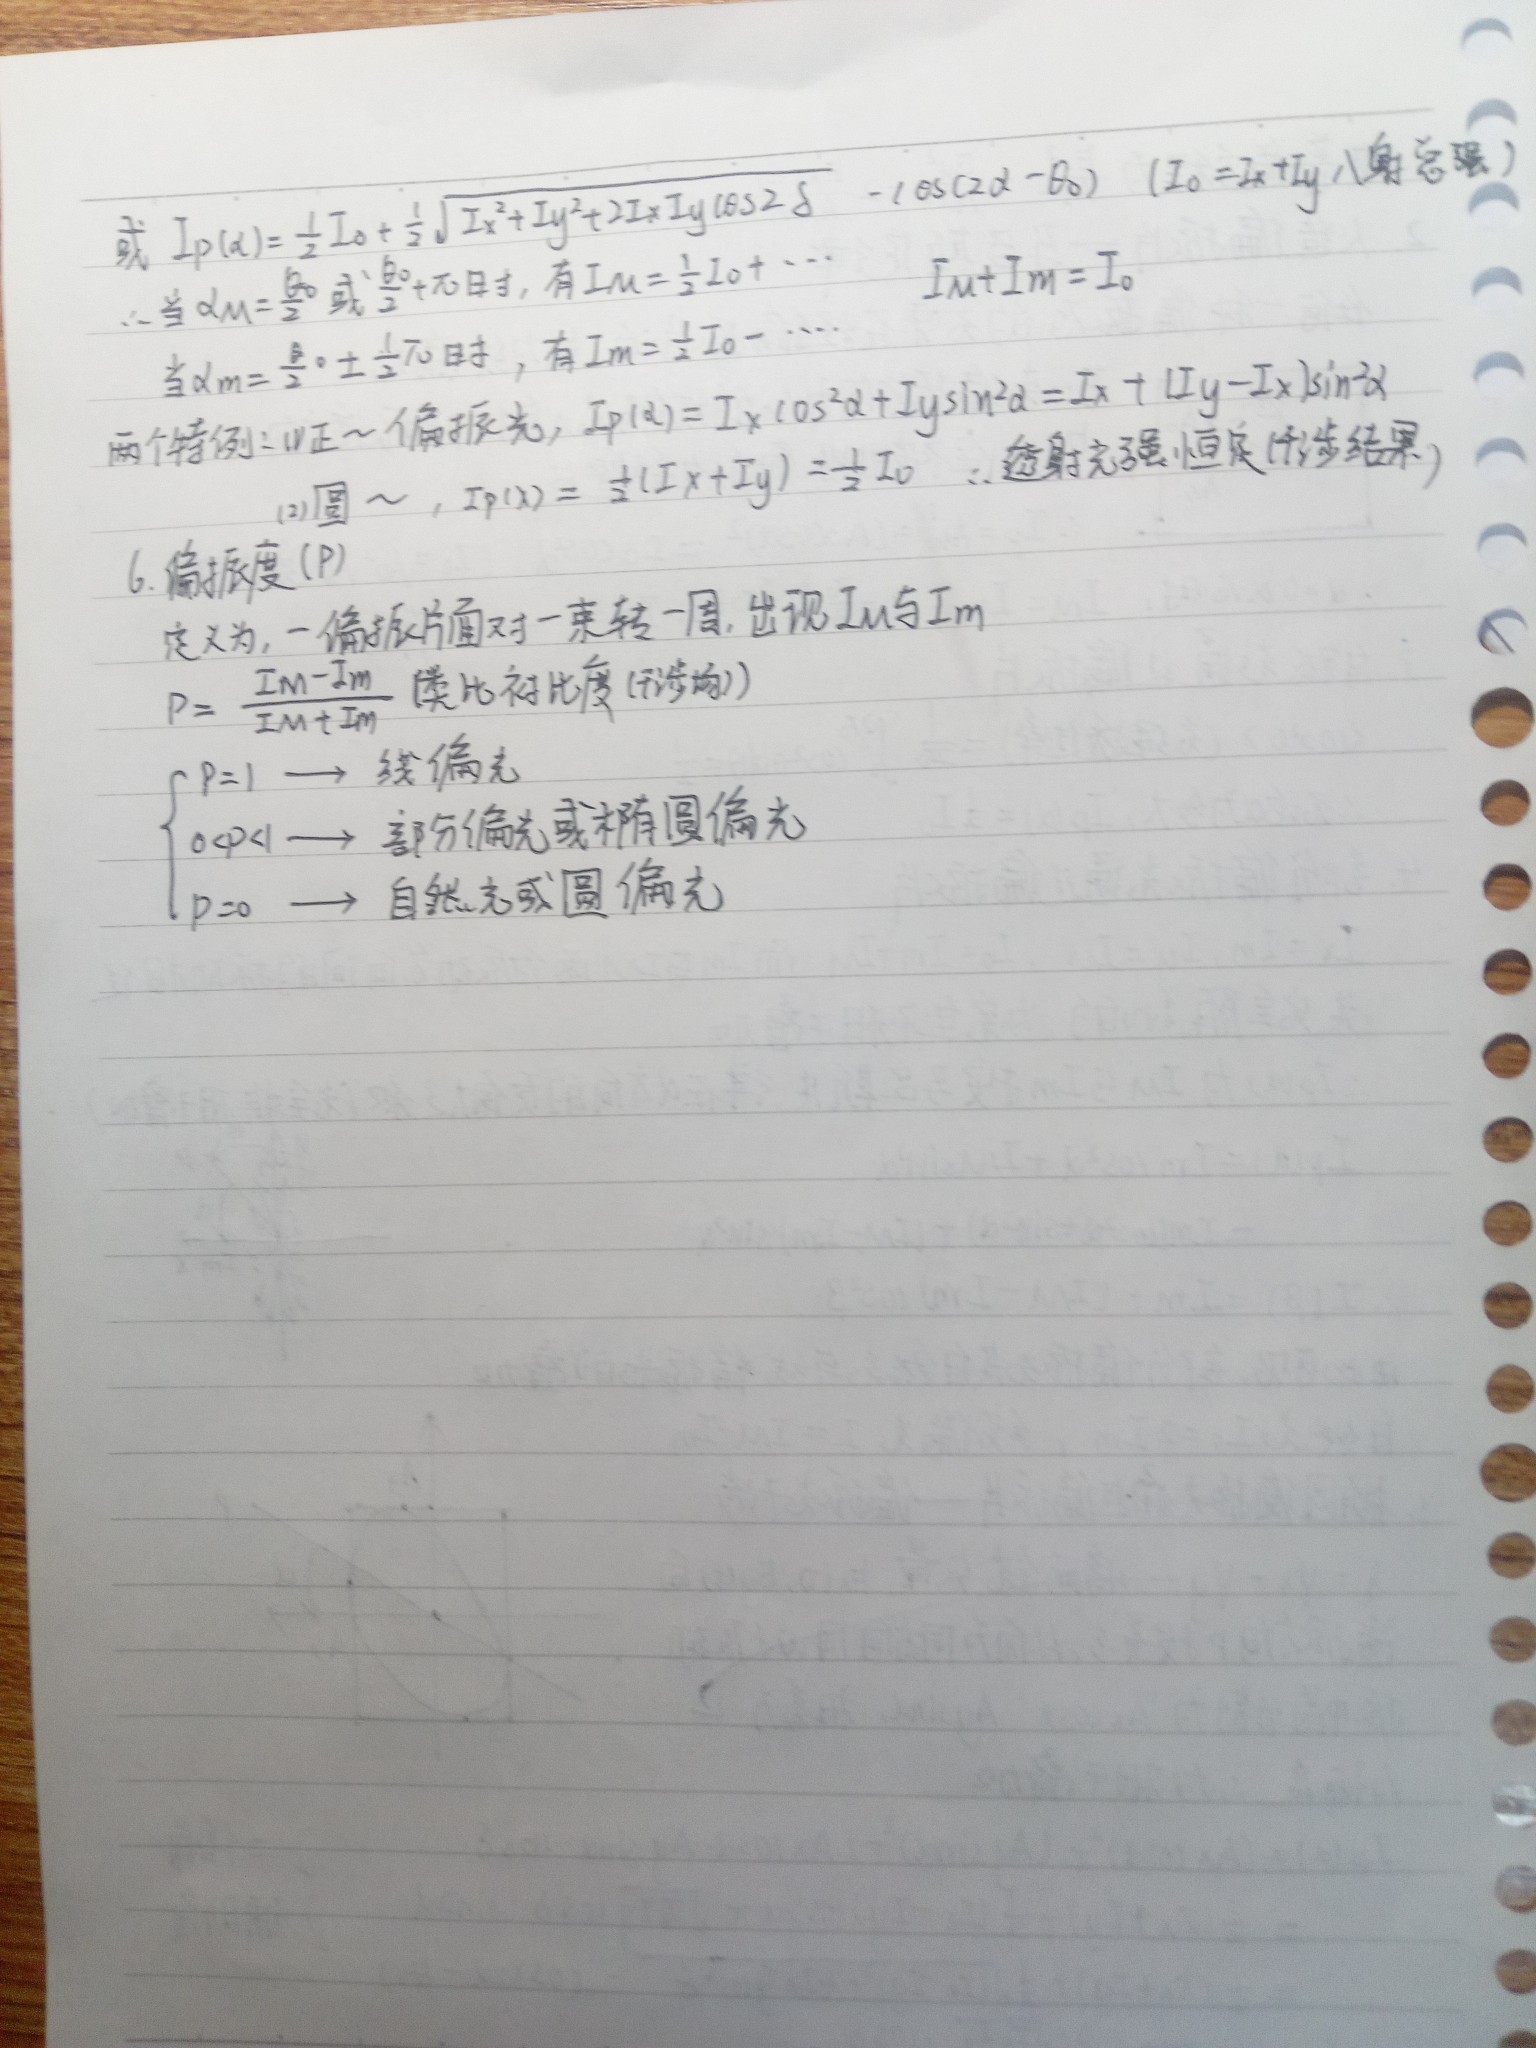 或 Ip(α)=½I₀+½√(Ix²+Iy²+2IxIycos2δ) -cos(2α-θ₀) (I₀=Ix+Iy 八射总强)
∴当αM=θ₀/2 或 θ₀/2+π时,有IM=½I₀+⋯ IM+Im=I₀
当αm=θ/2₀±½π时,有Im=½I₀-⋯
两个特例:(1)正~偏振光,Ip(α)=Ixcos²α+Iysin²α=Ix+(Iy-Ix)sin²α
(2)圆~,Ip(α)=½(Ix+Iy)=½I₀ ∴透射光强恒定(干涉结果)
6.偏振度(P)
定义为,一偏振片面对一束转一周,出现IM与Im
P=(IM-Im)/(IM+Im) (类比衬比度(干涉均))
{P=1 → 线偏光
0<P<1 → 部分偏光或椭圆偏光
P=0 → 自然光或圆偏光